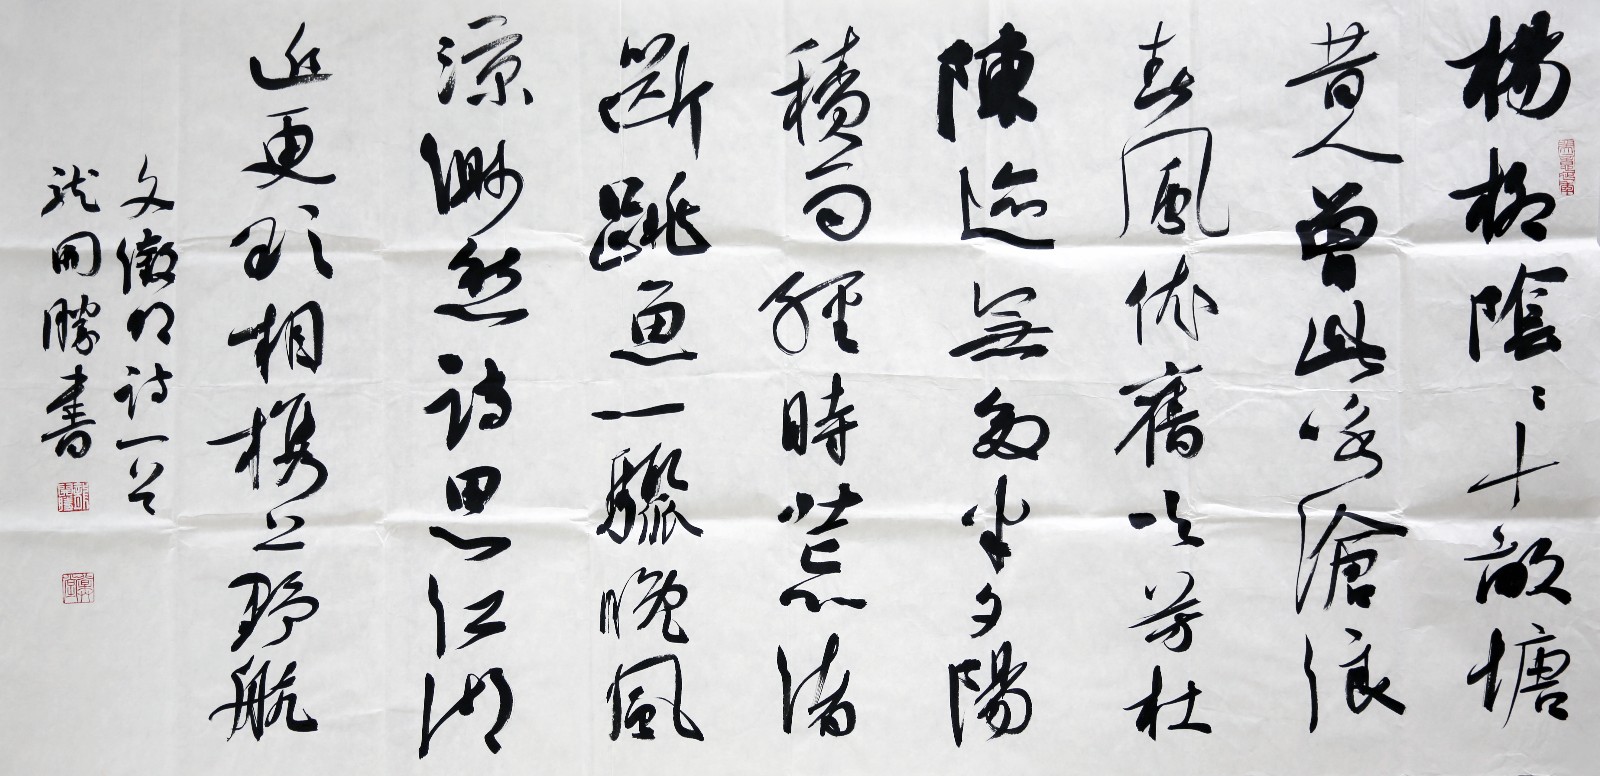 楊柳陰〻十畝塘
昔人曾此咏滄浪
春風依舊吹芳杜
陳迹無多半夕陽
積雨經時荒渚
斷跳魚一驟晚風
涼渺然詩思江湖
近更欲相携上野航
文徵明詩一首
龍開勝書